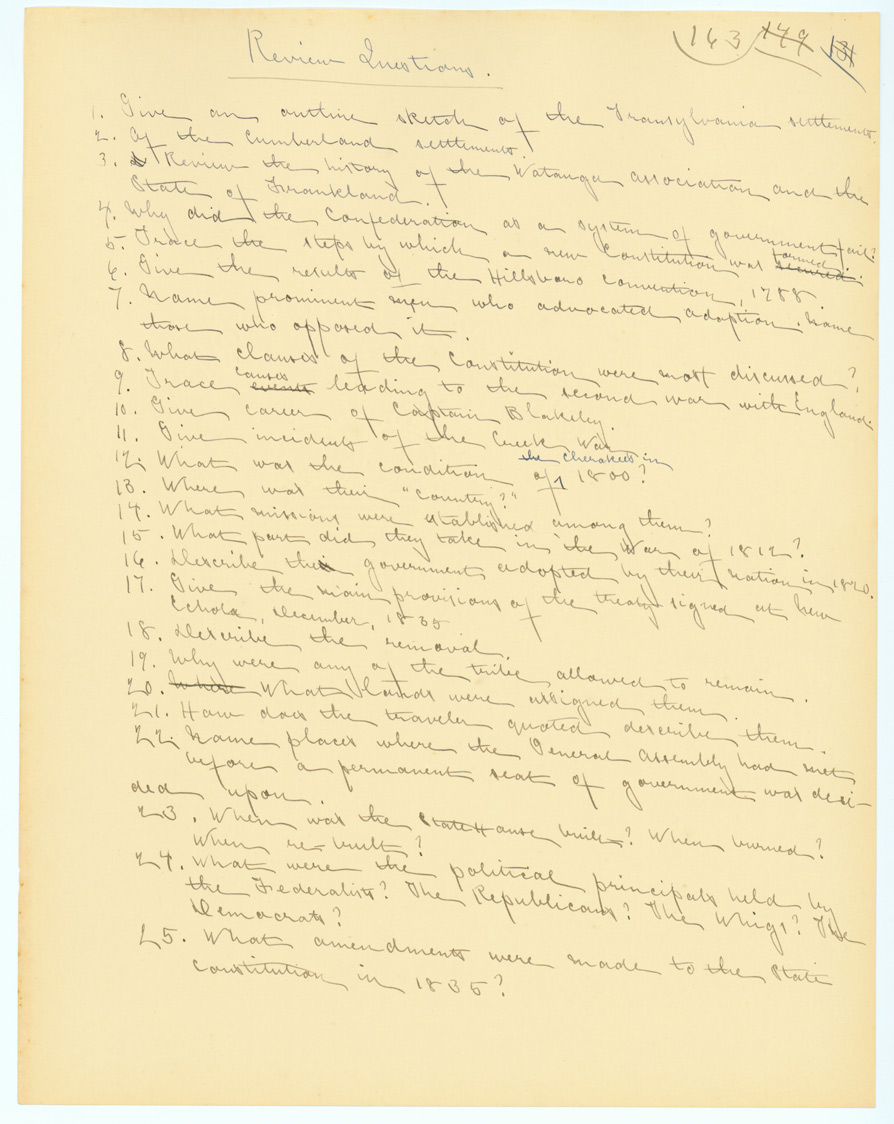 163 149 131
Review Questions.
1. Give an outline sketch of the Transylvania settlements.
2. Of the Cumberland settlements.
3. Review the history of the Watauga association and the
State of Frankland.
4. Why did the Confederation as a system of government fail?
5. Trace the steps by which a new Constitution was secured formed.
6. Give the results of the Hillsboro convention, 1788
7. Name prominent men who advocated adoption. Name
those who opposed it.
8. What clauses of the Constitution were most discussed?
9. Trace events causes leading to the second war with England.
10. Give career of Captain Blakeley.
11. Give incidents of the Creek War
12. What was the condition of the Cherokees in 1800?
13. Where was their "country?"
14. What missions were established among them?
15. What part did they take in the War of 1812?
16. Describe the government adopted by their nation in 1820.
17. Give the main provisions of the treaty signed at New
Echota, December, 1835
18. Describe the removal.
19. Why were any of the tribe allowed to remain.
20. Where What lands were assigned them.
21. How does the traveler quoted describe them.
22. Name places where the General Assembly had met
before a permanent seat of government was deci-
ded upon.
23. When was the State House built? When burned?
When re-built?
24. What were the political principals held by
the Federalists? The Republicans? The Whigs? The
Democrats?
25. What amendments were made to the State
constitution in 1835?